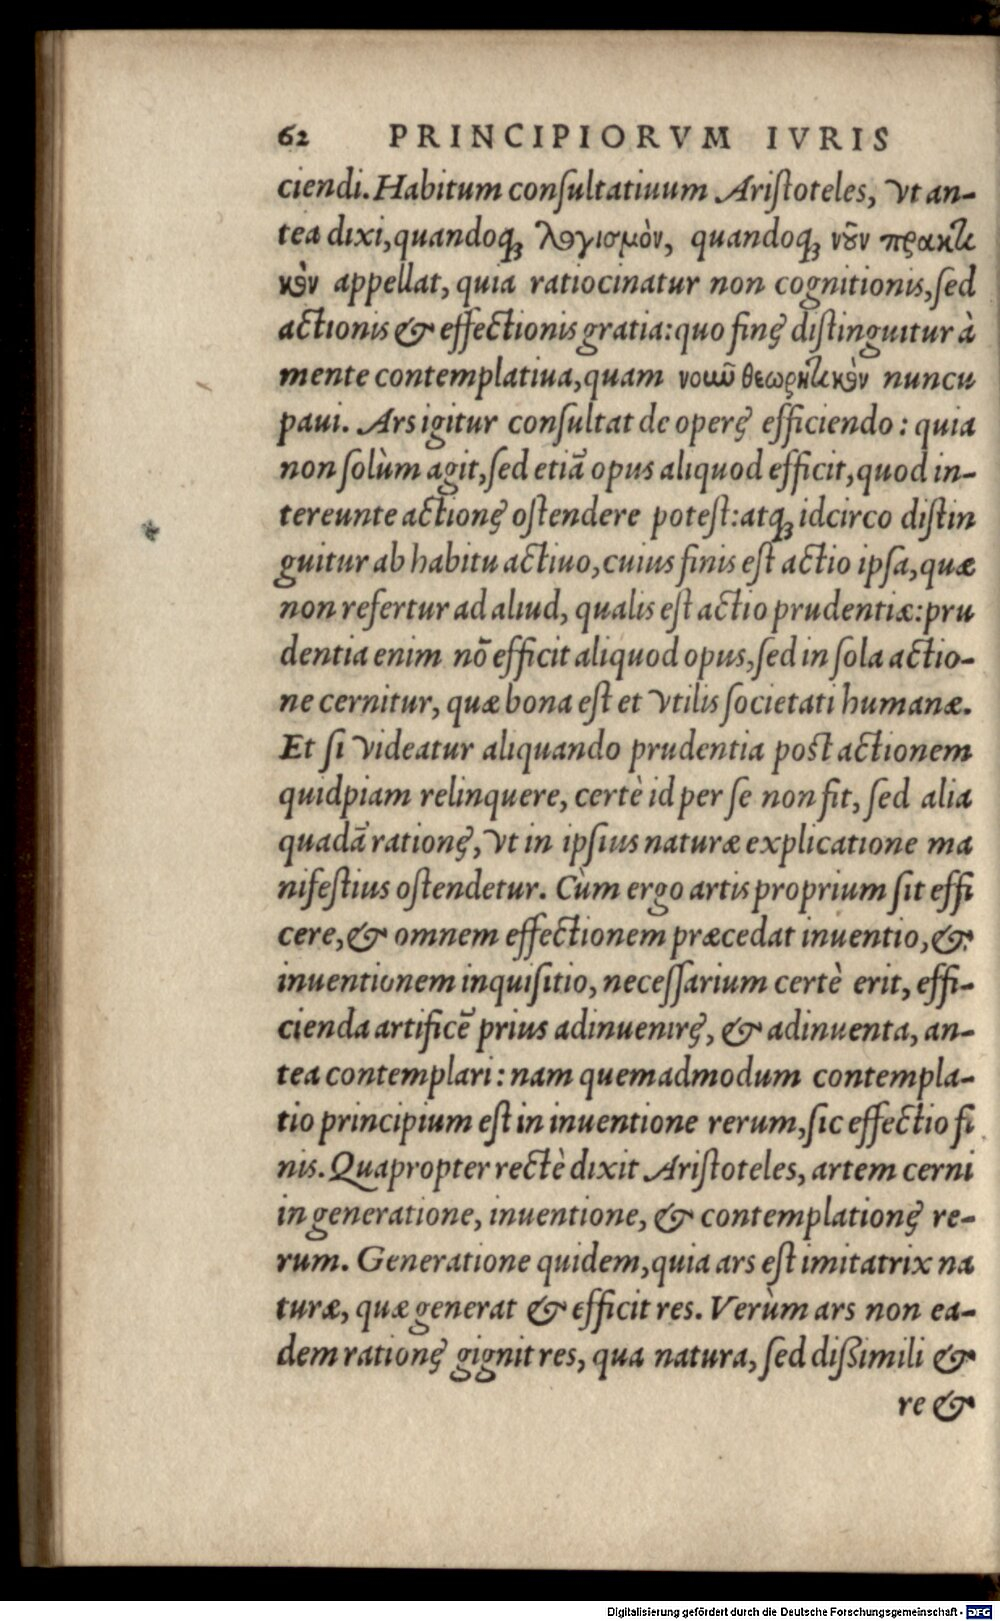 62 PRINCIPIORVM IVRIS
ciendi. Habitum conſultatiuum Ariſtoteles, vt an-
tea dixi, quandoqꝫ λογισμὸν, quandoqꝫ νοῦν πρακτι
κὸν appellat, quia ratiocinatur non cognitionis, ſed
actionis & effectionis gratia: quo fine diſtinguitur à
mente contemplatiua, quam νοιοῦ θεωρητικὸν nuncu
paui. Ars igitur conſultat de opere efficiendo: quia
non ſolùm agit, ſed etiã opus aliquod efficit, quod in-
tereunte actione oſtendere poteſt: atqꝫ idcirco diſtin
guitur ab habitu actiuo, cuius finis eſt actio ipſa, quæ
non refertur ad aliud, qualis eſt actio prudentiæ: pru
dentia enim nõ efficit aliquod opus, ſed in ſola actio-
ne cernitur, quæ bona eſt et vtilis ſocietati humanæ.
Et ſi videatur aliquando prudentia poſt actionem
quidpiam relinquere, certè id per ſe non fit, ſed alia
quadã ratione, vt in ipſius naturæ explicatione ma
nifeſtius oſtendetur. Cùm ergo artis proprium ſit effi
cere, & omnem effectionem præcedat inuentio, &
inuentionem inquiſitio, neceſſarium certè erit, effi-
cienda artificẽ prius adinuenire, & adinuenta, an-
tea contemplari: nam quemadmodum contempla-
tio principium eſt in inuentione rerum, ſic effectio fi
nis. Quapropter rectè dixit Ariſtoteles, artem cerni
in generatione, inuentione, & contemplatione re-
rum. Generatione quidem, quia ars eſt imitatrix na
turæ, quæ generat & efficit res. Verùm ars non ea-
dem ratione gignit res, qua natura, ſed dißimili &
re &
Digitalisierung gefördert durch die Deutsche Forschungsgemeinschaft - DFG